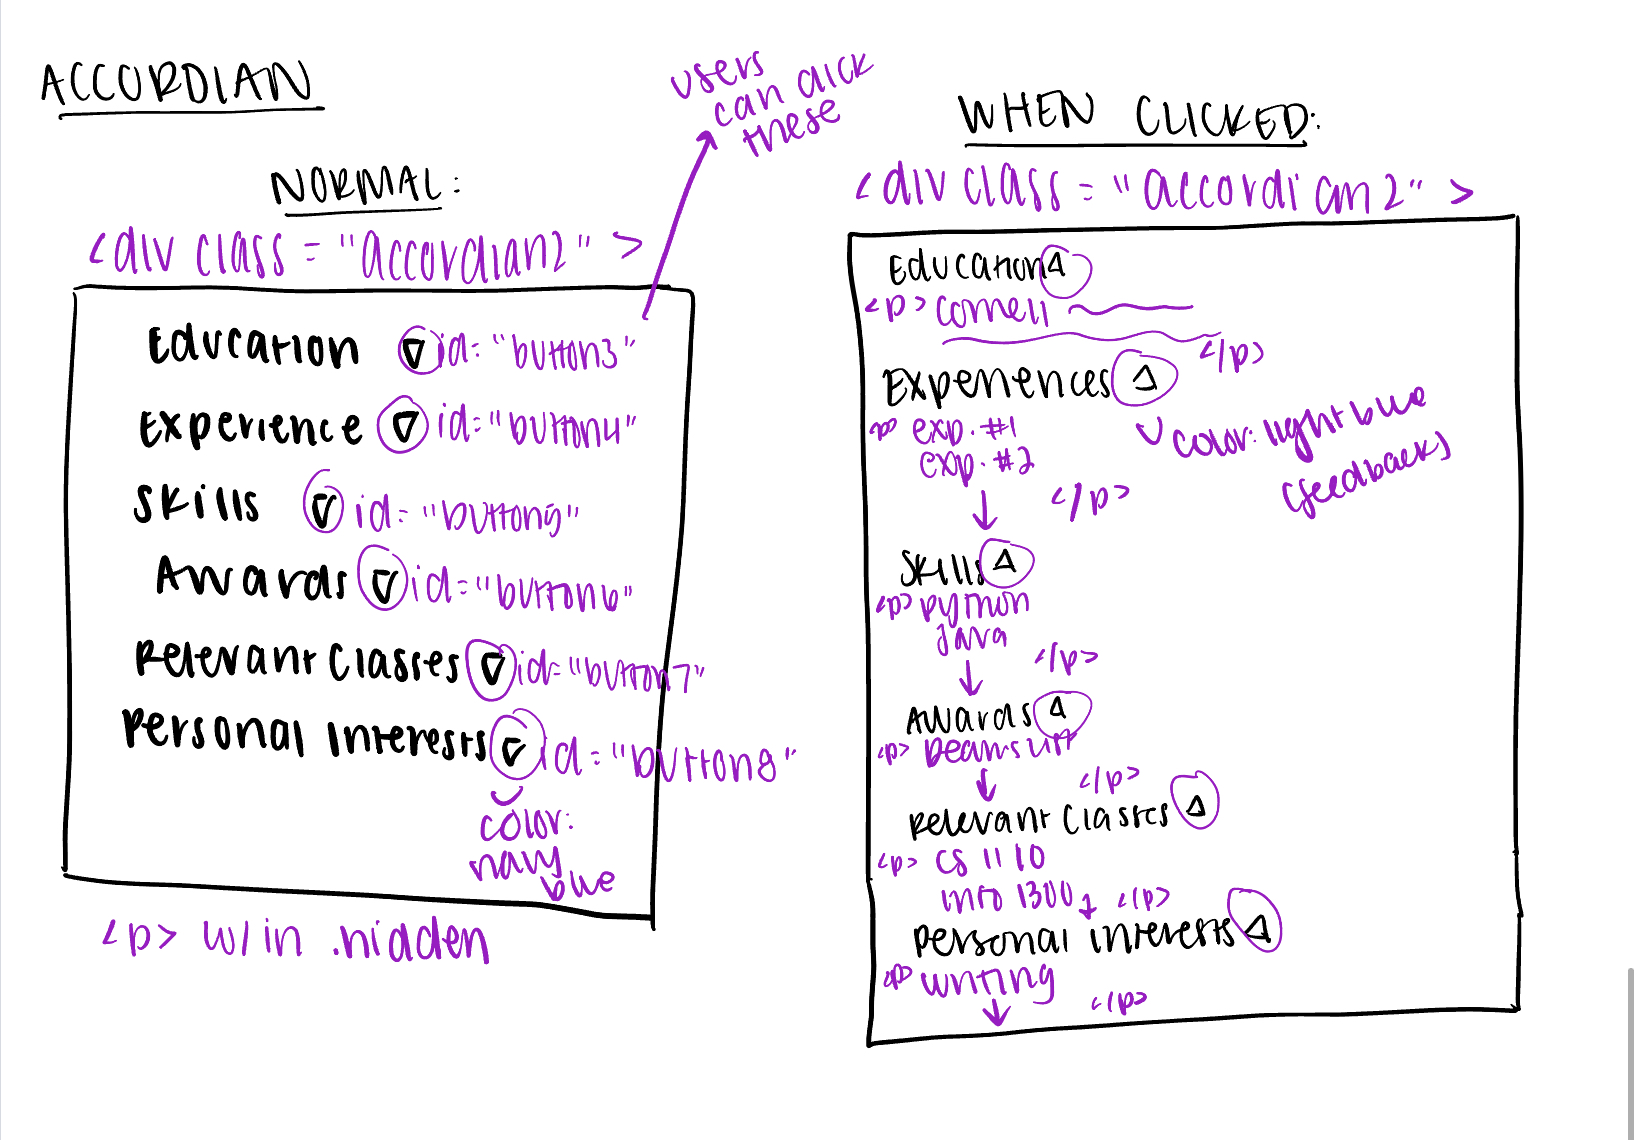 ACCORDIAN
users
can click
these
NORMAL:
<div class = "accordian2" >
Education id= "button3"
Experience id="button4"
Skills id= "button5"
Awards id="button6"
Relevant Classes id="button7"
Personal Interests id= "button8"
color:
navy
blue
<p> w/in .hidden
WHEN CLICKED:
<div class = "accordian2" >
Education
<p> cornell
</p>
Experiences
<p> exp. #1
exp. #2
</p>
color: light blue
(feedback)
Skills
<p> python
java
</p>
Awards
<p>
</p>
Relevant Classes
<p> CS 1110
info 1300 </p>
Personal Interests
<p> writing
</p>